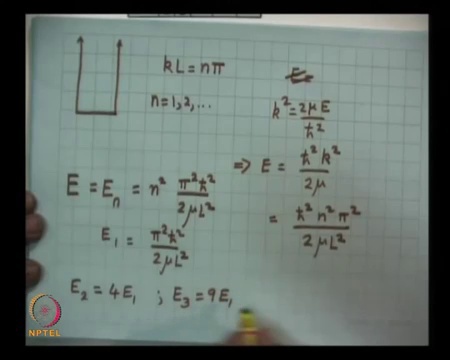 kL = nπ
n = 1, 2, ...
k² = 2μE / ħ²
⇒ E = ħ²k² / 2μ
= ħ²n²π² / 2μL²
E = Eₙ = n² π²ħ² / 2μL²
E₁ = π²ħ² / 2μL²
E₂ = 4E₁ ; E₃ = 9E₁
NPTEL